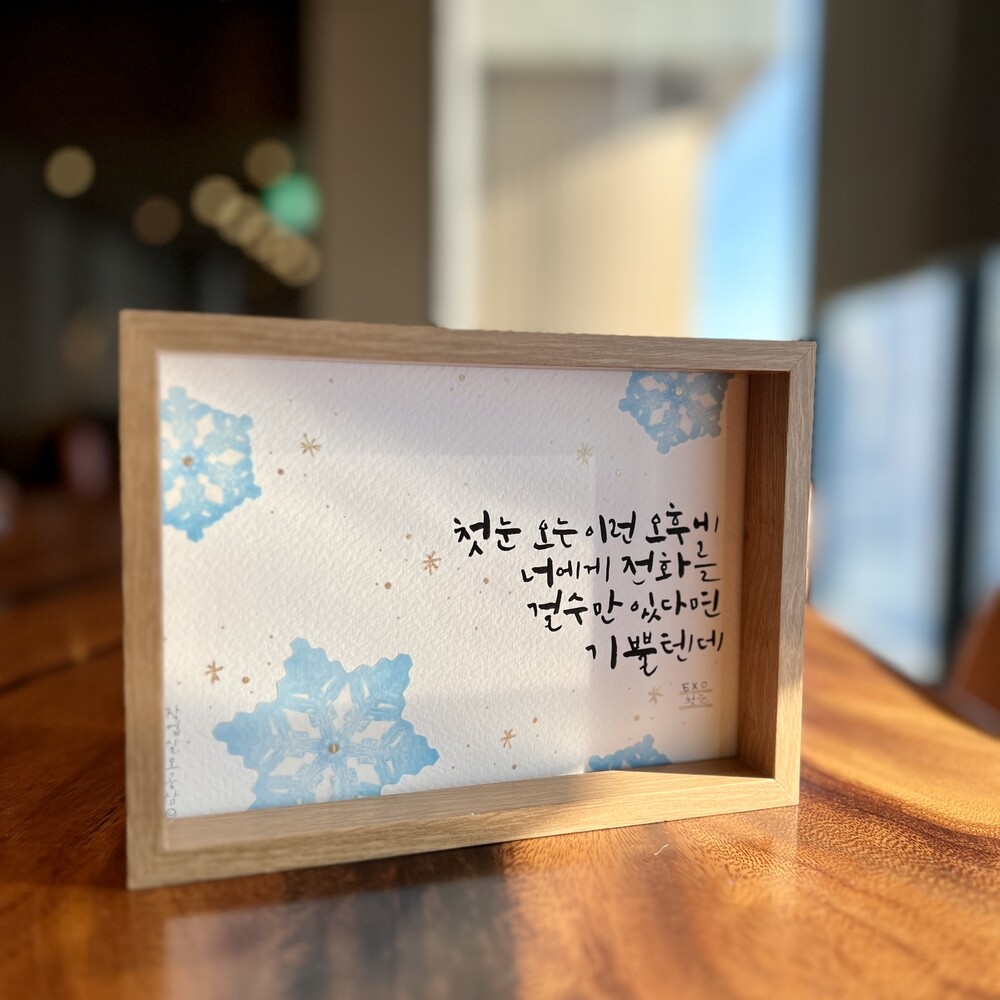 첫눈 오는 이런 오후에
너에게 전화를
걸수만 있다면
기쁠텐데
EXO
첫눈
작업실오공남